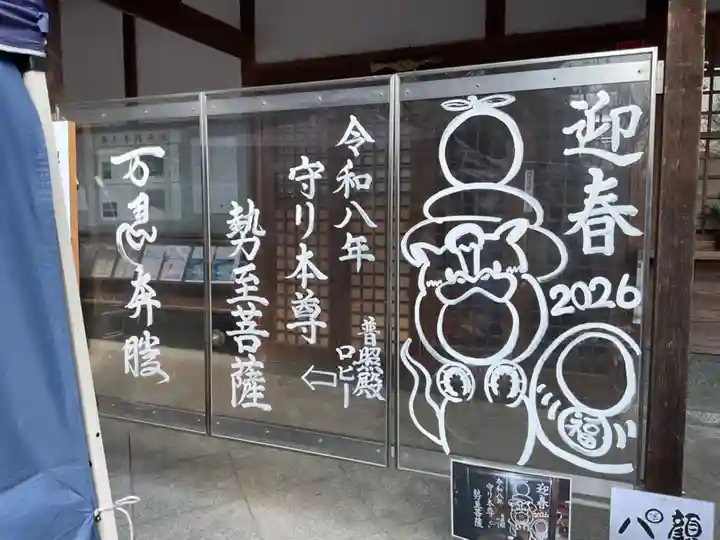 迎春
2026
福
令和八年
守り本尊
勢至菩薩
普照殿
ロビー
万愚奔騰
迎春
2026
令和八年
守り本尊
勢至菩薩
パ
顔